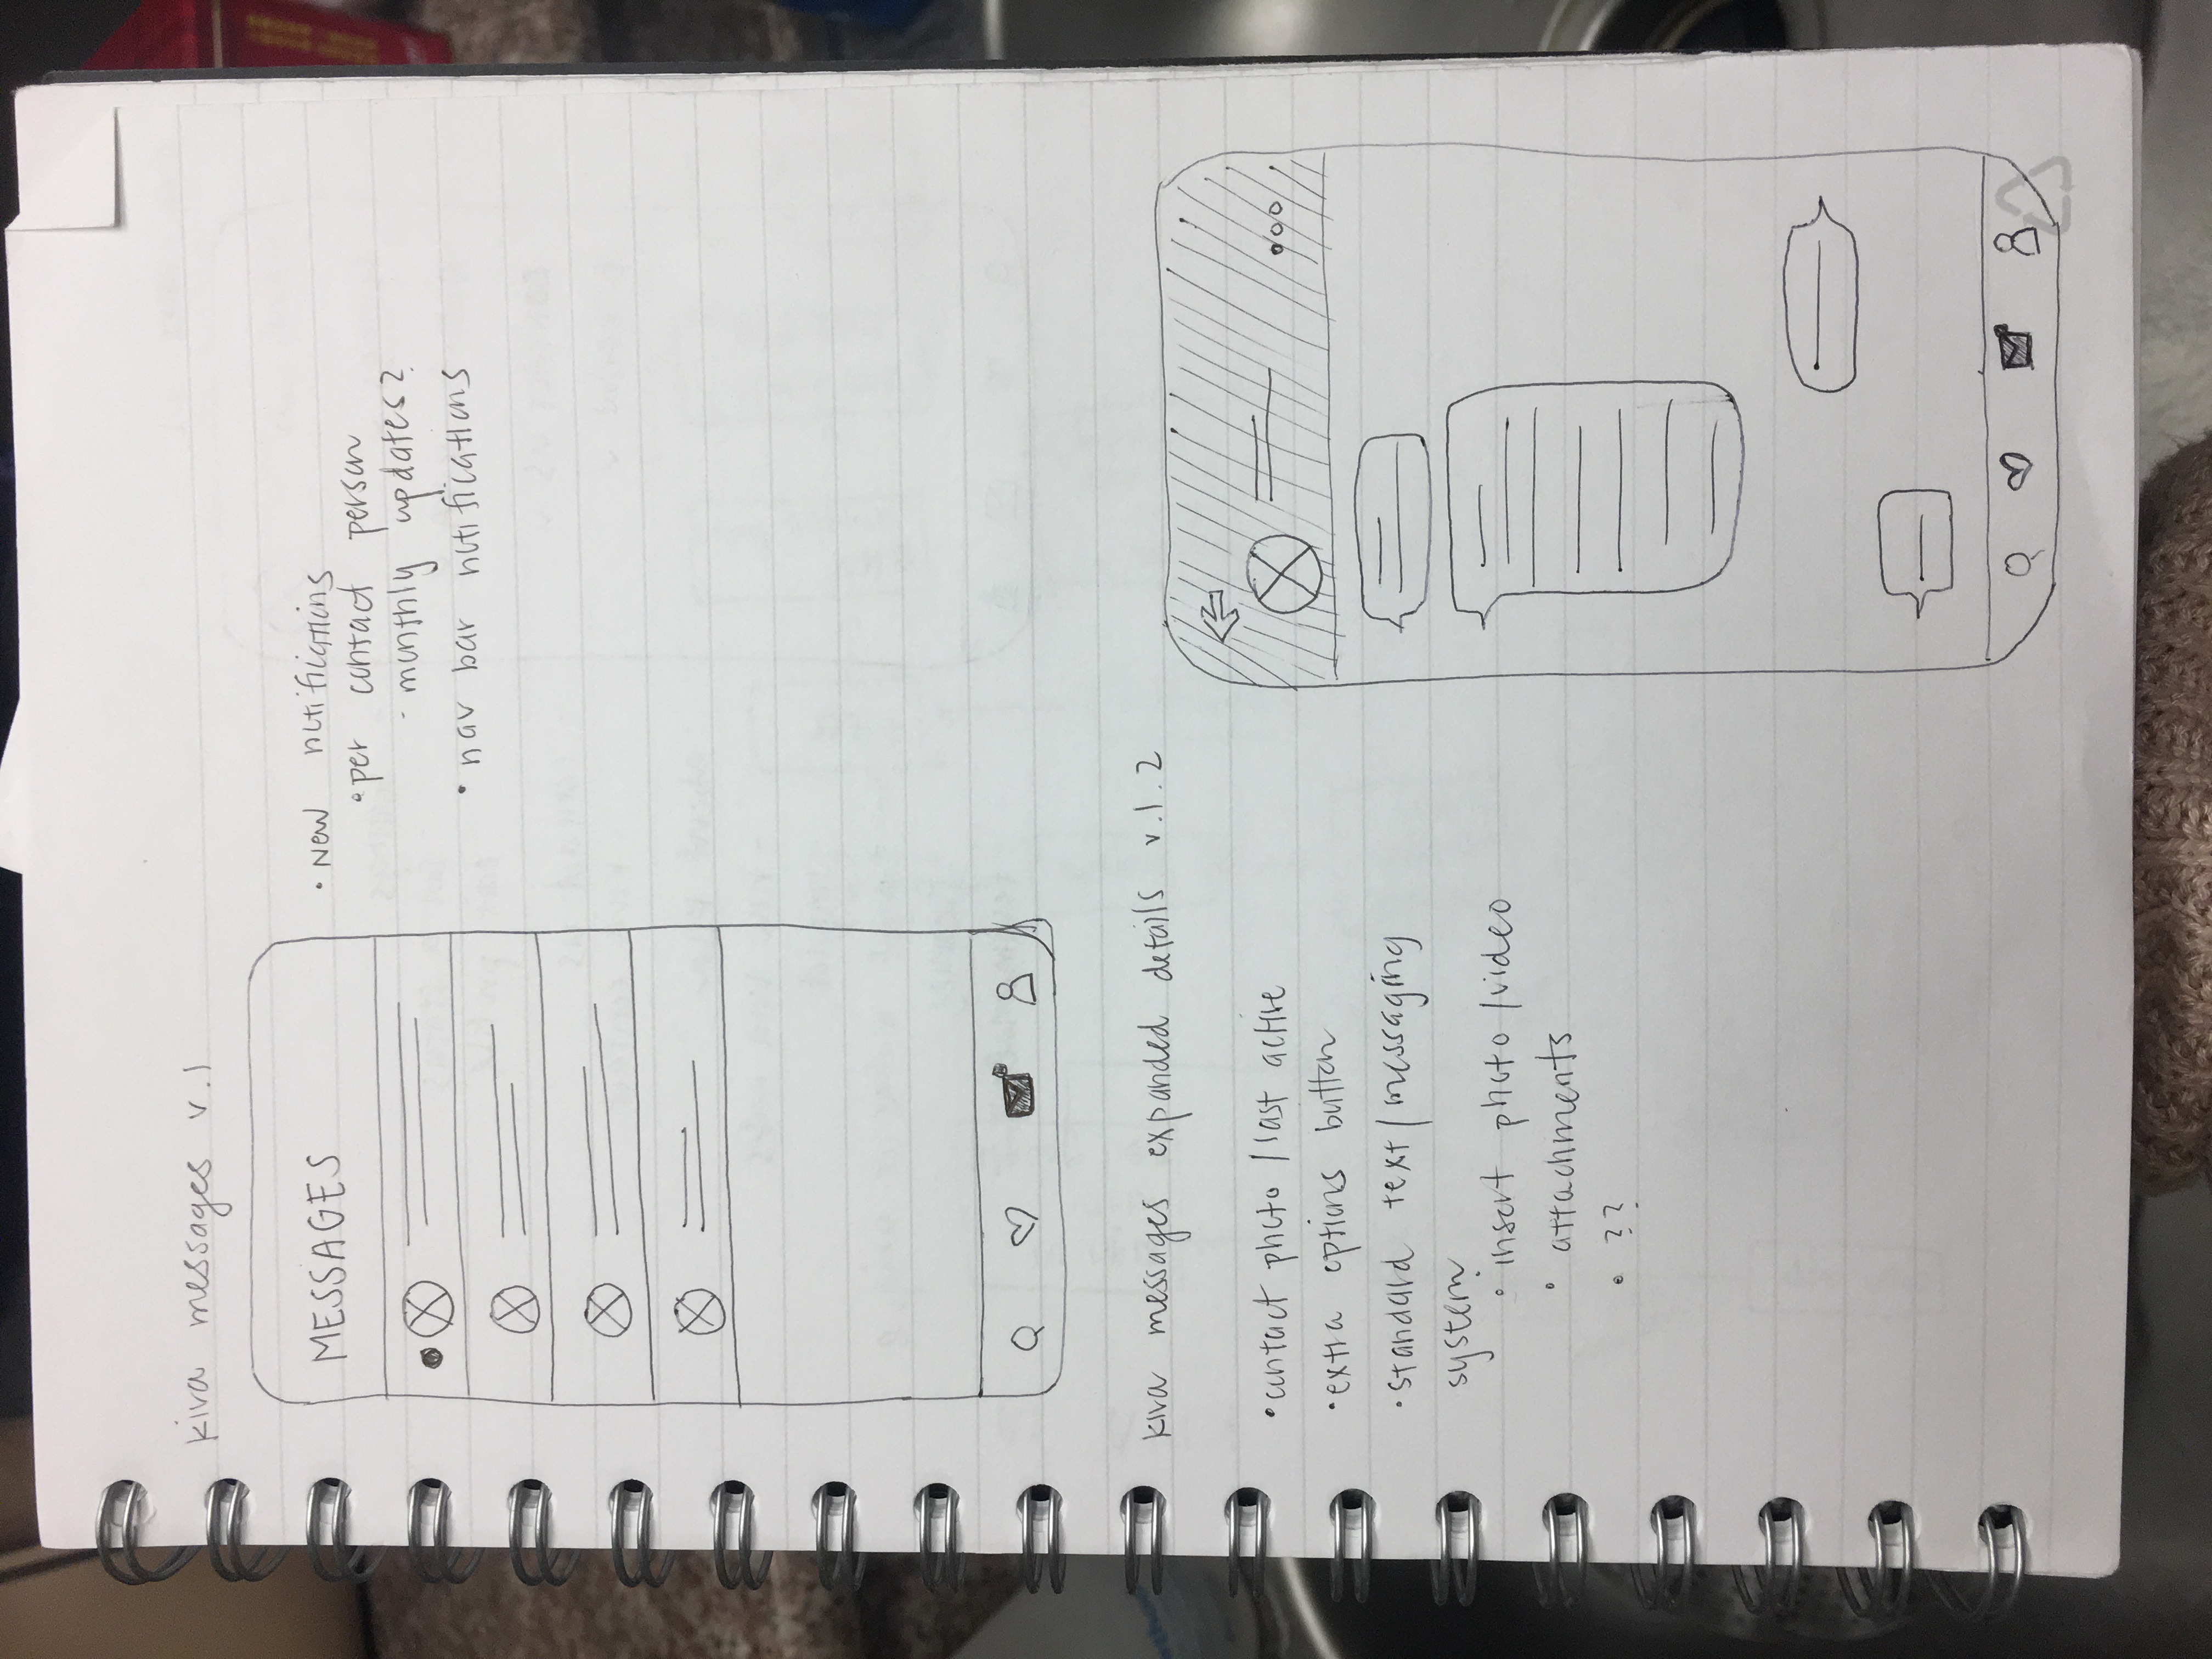 kiva messages v.1
MESSAGES
• New notifications
• per contact person
- monthly updates?
• nav bar notifications
kiva messages expanded details v.1.2
• contact photo / last active
• extra options button
• standard text / messaging
system
• insert photo / video
• attachments
• ??